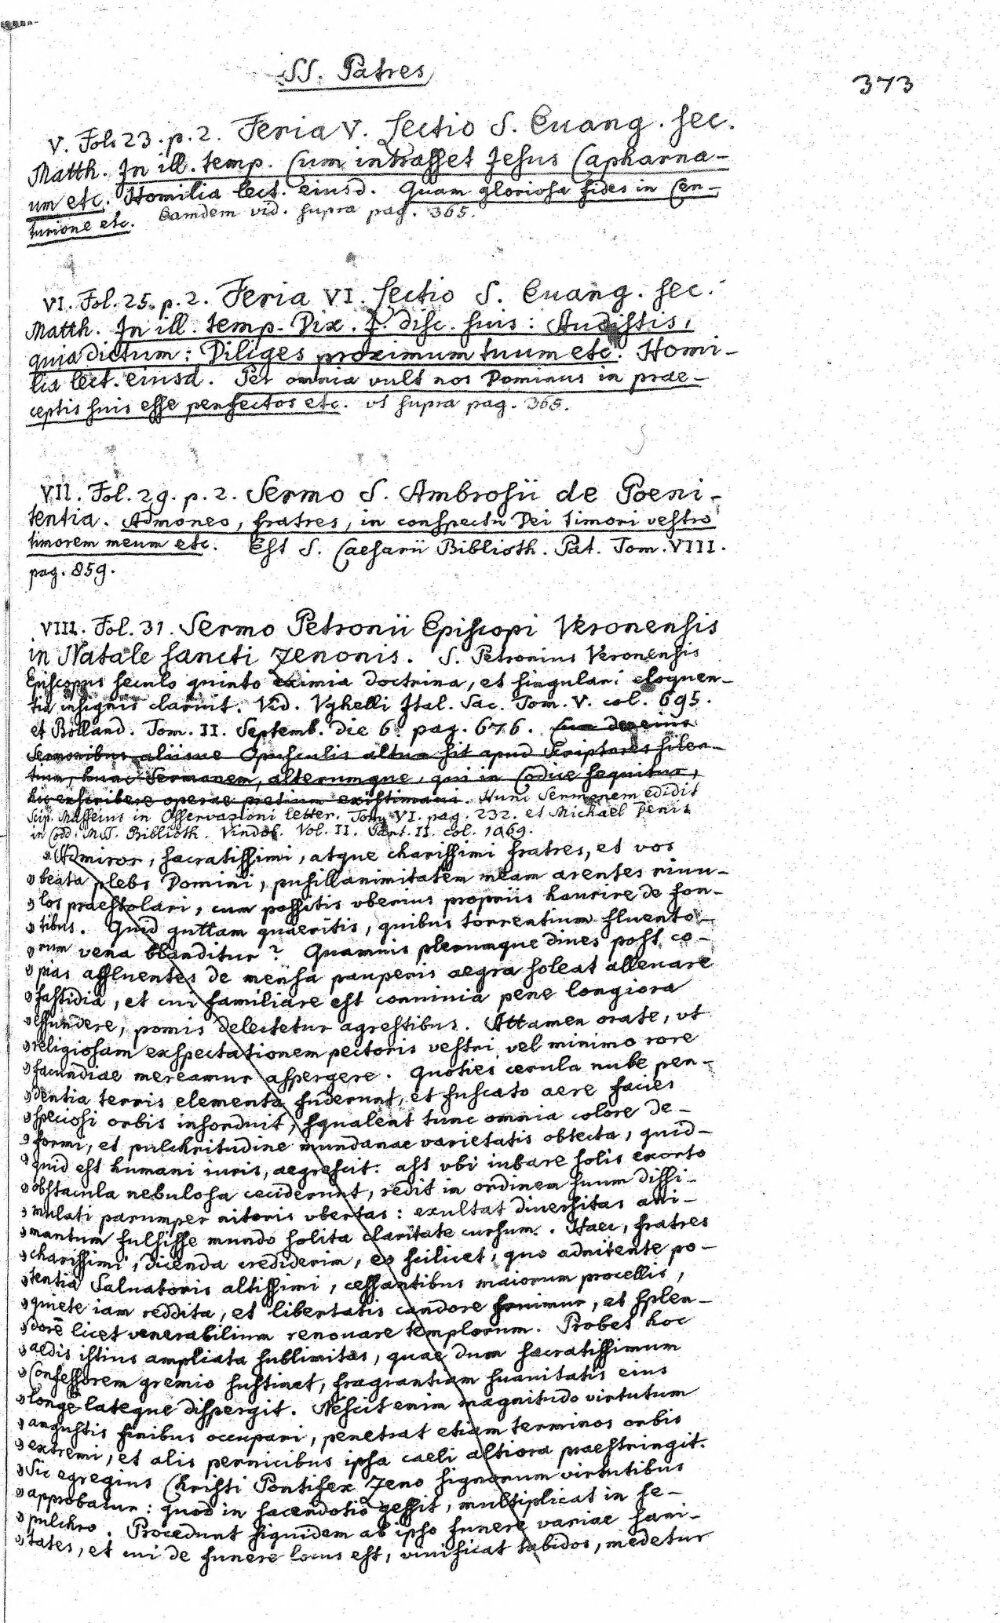 SS. Patres
373
V. Fol. 23. p. 2. Feria V. Lectio S. Euang. sec.
Matth. In ill. temp. Cum intrasset Jesus Capharna-
um etc. Homilia lect. eiusd. Quam gloriosa fides in Cen-
turione etc. Eamdem vid. supra pag. 365.
VI. Fol. 25. p. 2. Feria VI. Lectio S. Euang. sec.
Matth. In ill. temp. Dix. J. disc. suis: Audistis,
quia dictum: Diliges proximum tuum etc. Homi-
lia lect. eiusd. Per omnia vult nos Dominus in prae-
ceptis suis esse perfectos etc. vt supra pag. 365.
VII. Fol. 29. p. 2. Sermo S. Ambrosii de Poeni-
tentia. Admoneo, fratres, in conspectu Dei timori vestro
timorem meum etc. Est S. Caesarii Biblioth. Pat. Tom. VIII.
pag. 859.
VIII. Fol. 31. Sermo Petronii Episcopi Veronensis
in Natale sancti Zenonis. S. Petronius Veronensis
Episcopus seculo quinto eximia doctrina, et singulari eloquen-
tia insignis claruit. Vid. Vghelli Ital. Sac. Tom. V. col. 695.
et Bolland. Tom. II. Septemb. die 6. pag. 676. Cum de eius
Sermonibus aliisue Opusculis altum sit apud Scriptores silen-
tium, hunc Sermonem, alterumque, qui in Codice sequitur,
hic exscribere operae pretium existimaui. Hunc Sermonem edidit
Scip. Maffeius in Osservazioni letter. Tom. VI. pag. 232. et Michael Denis
in Cod. M.T. Biblioth. Vindob. Vol. II. Part. II. col. 1969.
„Admiror, sacratissimi, atque charissimi fratres, et vos
„beata plebs Domini, pusillanimitatem meam arentes riuu-
„los praestolari, cum possitis vberius propriis haurire de fon-
„tibus. Quid guttam quaeritis, quibus torrentium fluento-
„rum vena blanditur? Quamuis plerumque diues post co-
„pias affluentes de mensa pauperis aegra soleat alleuare
„fastidia, et cui familiare est conuiuia pene longiora
„effundere, pomis delectetur agrestibus. Attamen orate, vt
„religiosam exspectationem pectoris vestri vel minimo rore
„facundiae mereamur aspergere. Quoties cerula nube pen-
„dentia terris elementa fuderunt, et fuscato aere facies
„speciosi orbis insorduit, squalent tunc omnia colore de-
„formi, et pulchritudine mundanae varietatis obtecta, quid-
„quid est humani iuris, aegrescit: ast vbi iubare solis exorto
„obstacula nebulosa ceciderunt, redit in ordinem suum dissi-
„mulati parumper nitoris vbertas: exultat diuersitas ani-
„mantum fulsisse mundo solita claritate cursum. Haec, fratres
„charissimi, dicenda crediderim, eo scilicet, quo adnitente po-
„tentia Saluatoris altissimi, cessantibus maiorum procellis,
„quiete iam reddita, et libertatis candore fruimur, et splen-
„dorē licet venerabilium renouare templorum. Probet hoc
„aedis istius ampliata sublimitas, quae dum sacratissimum
„Confessorem gremio sustinet, fragrantiam suauitatis eius
„longe lateque dispergit. Nescit enim magnitudo virtutum
„angustis finibus occupari, penetrat etiam terminos orbis
„extremi, et alis pernicibus ipsa caeli altiora praestringit.
„Sic egregius Christi Pontifex Zeno signorum virtutibus
„approbatur: quod in sacerdotio gessit, multiplicat in se-
„pulchro. Procedunt siquidem ab ipso funere variae sani-
„tates, et cui de funere locus est, viuificat tabidos, medetur